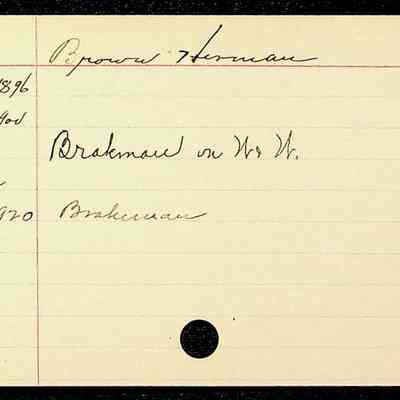 Brown Herman
1896
Brakman on W & W.
920 Brakeman